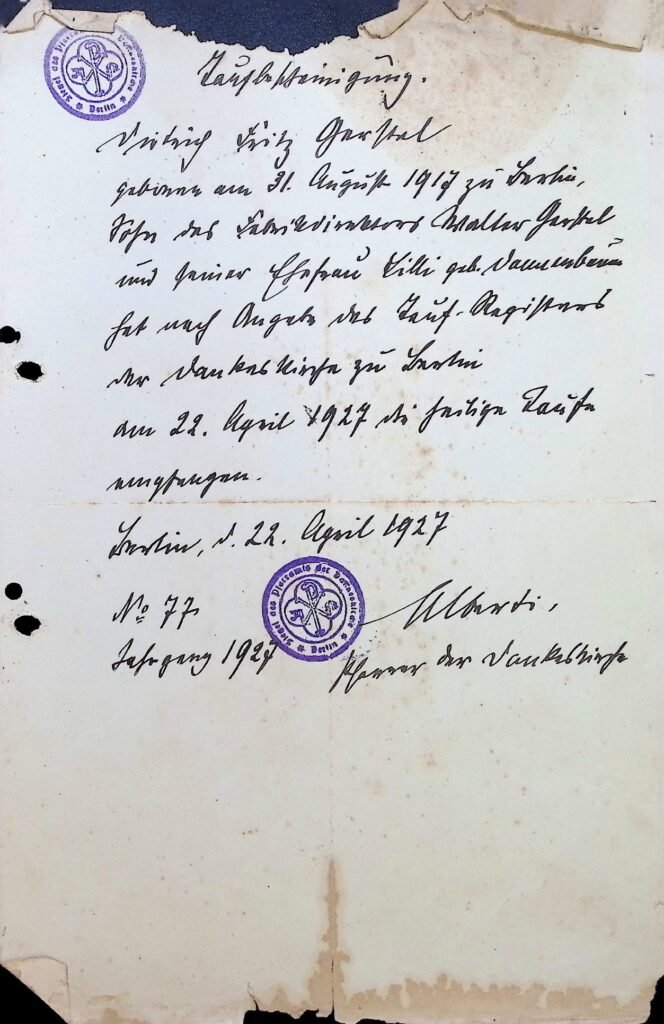 Siegel des Pfarramts der Dankeskirche
Berlin
Taufbescheinigung.
Dietrich Fritz Gerstel
geboren am 31. August 1917 zu Berlin,
Sohn des Fabrikdirektors Walter Gerstel
und seiner Ehefrau Lilli geb. Dannenbaum
hat nach Angabe des Tauf-Registers
der Dankeskirche zu Berlin
am 22. April 1927 die heilige Taufe
empfangen.
Berlin, d. 22. April 1927
Siegel des Pfarramts der Dankeskirche
Berlin
No 77
Alberti,
Jahrgang 1927
Pfarrer der Dankeskirche